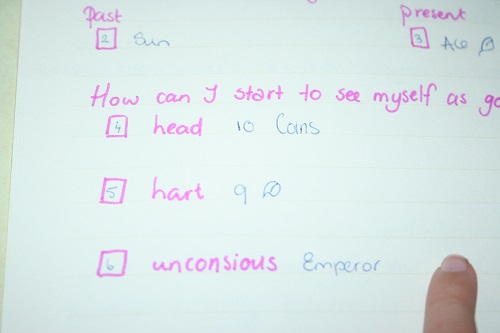 past present
2 Sun 3 Ace
How can I start to see myself as go
4 head 10 Coins
5 hart 9
6 unconsious Emperor